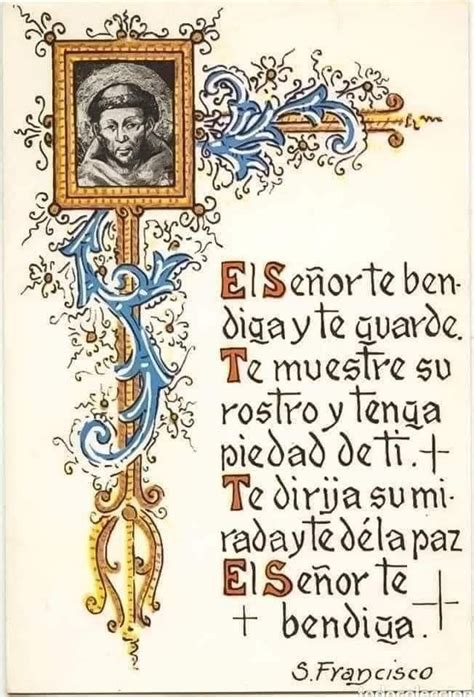 El Señor te ben-
diga y te guarde.
Te muestre su
rostro y tenga
piedad de ti. +
Te dirija su mi-
rada y te dé la paz
El Señor te
+ bendiga. +
S. Francisco
todocoleccion